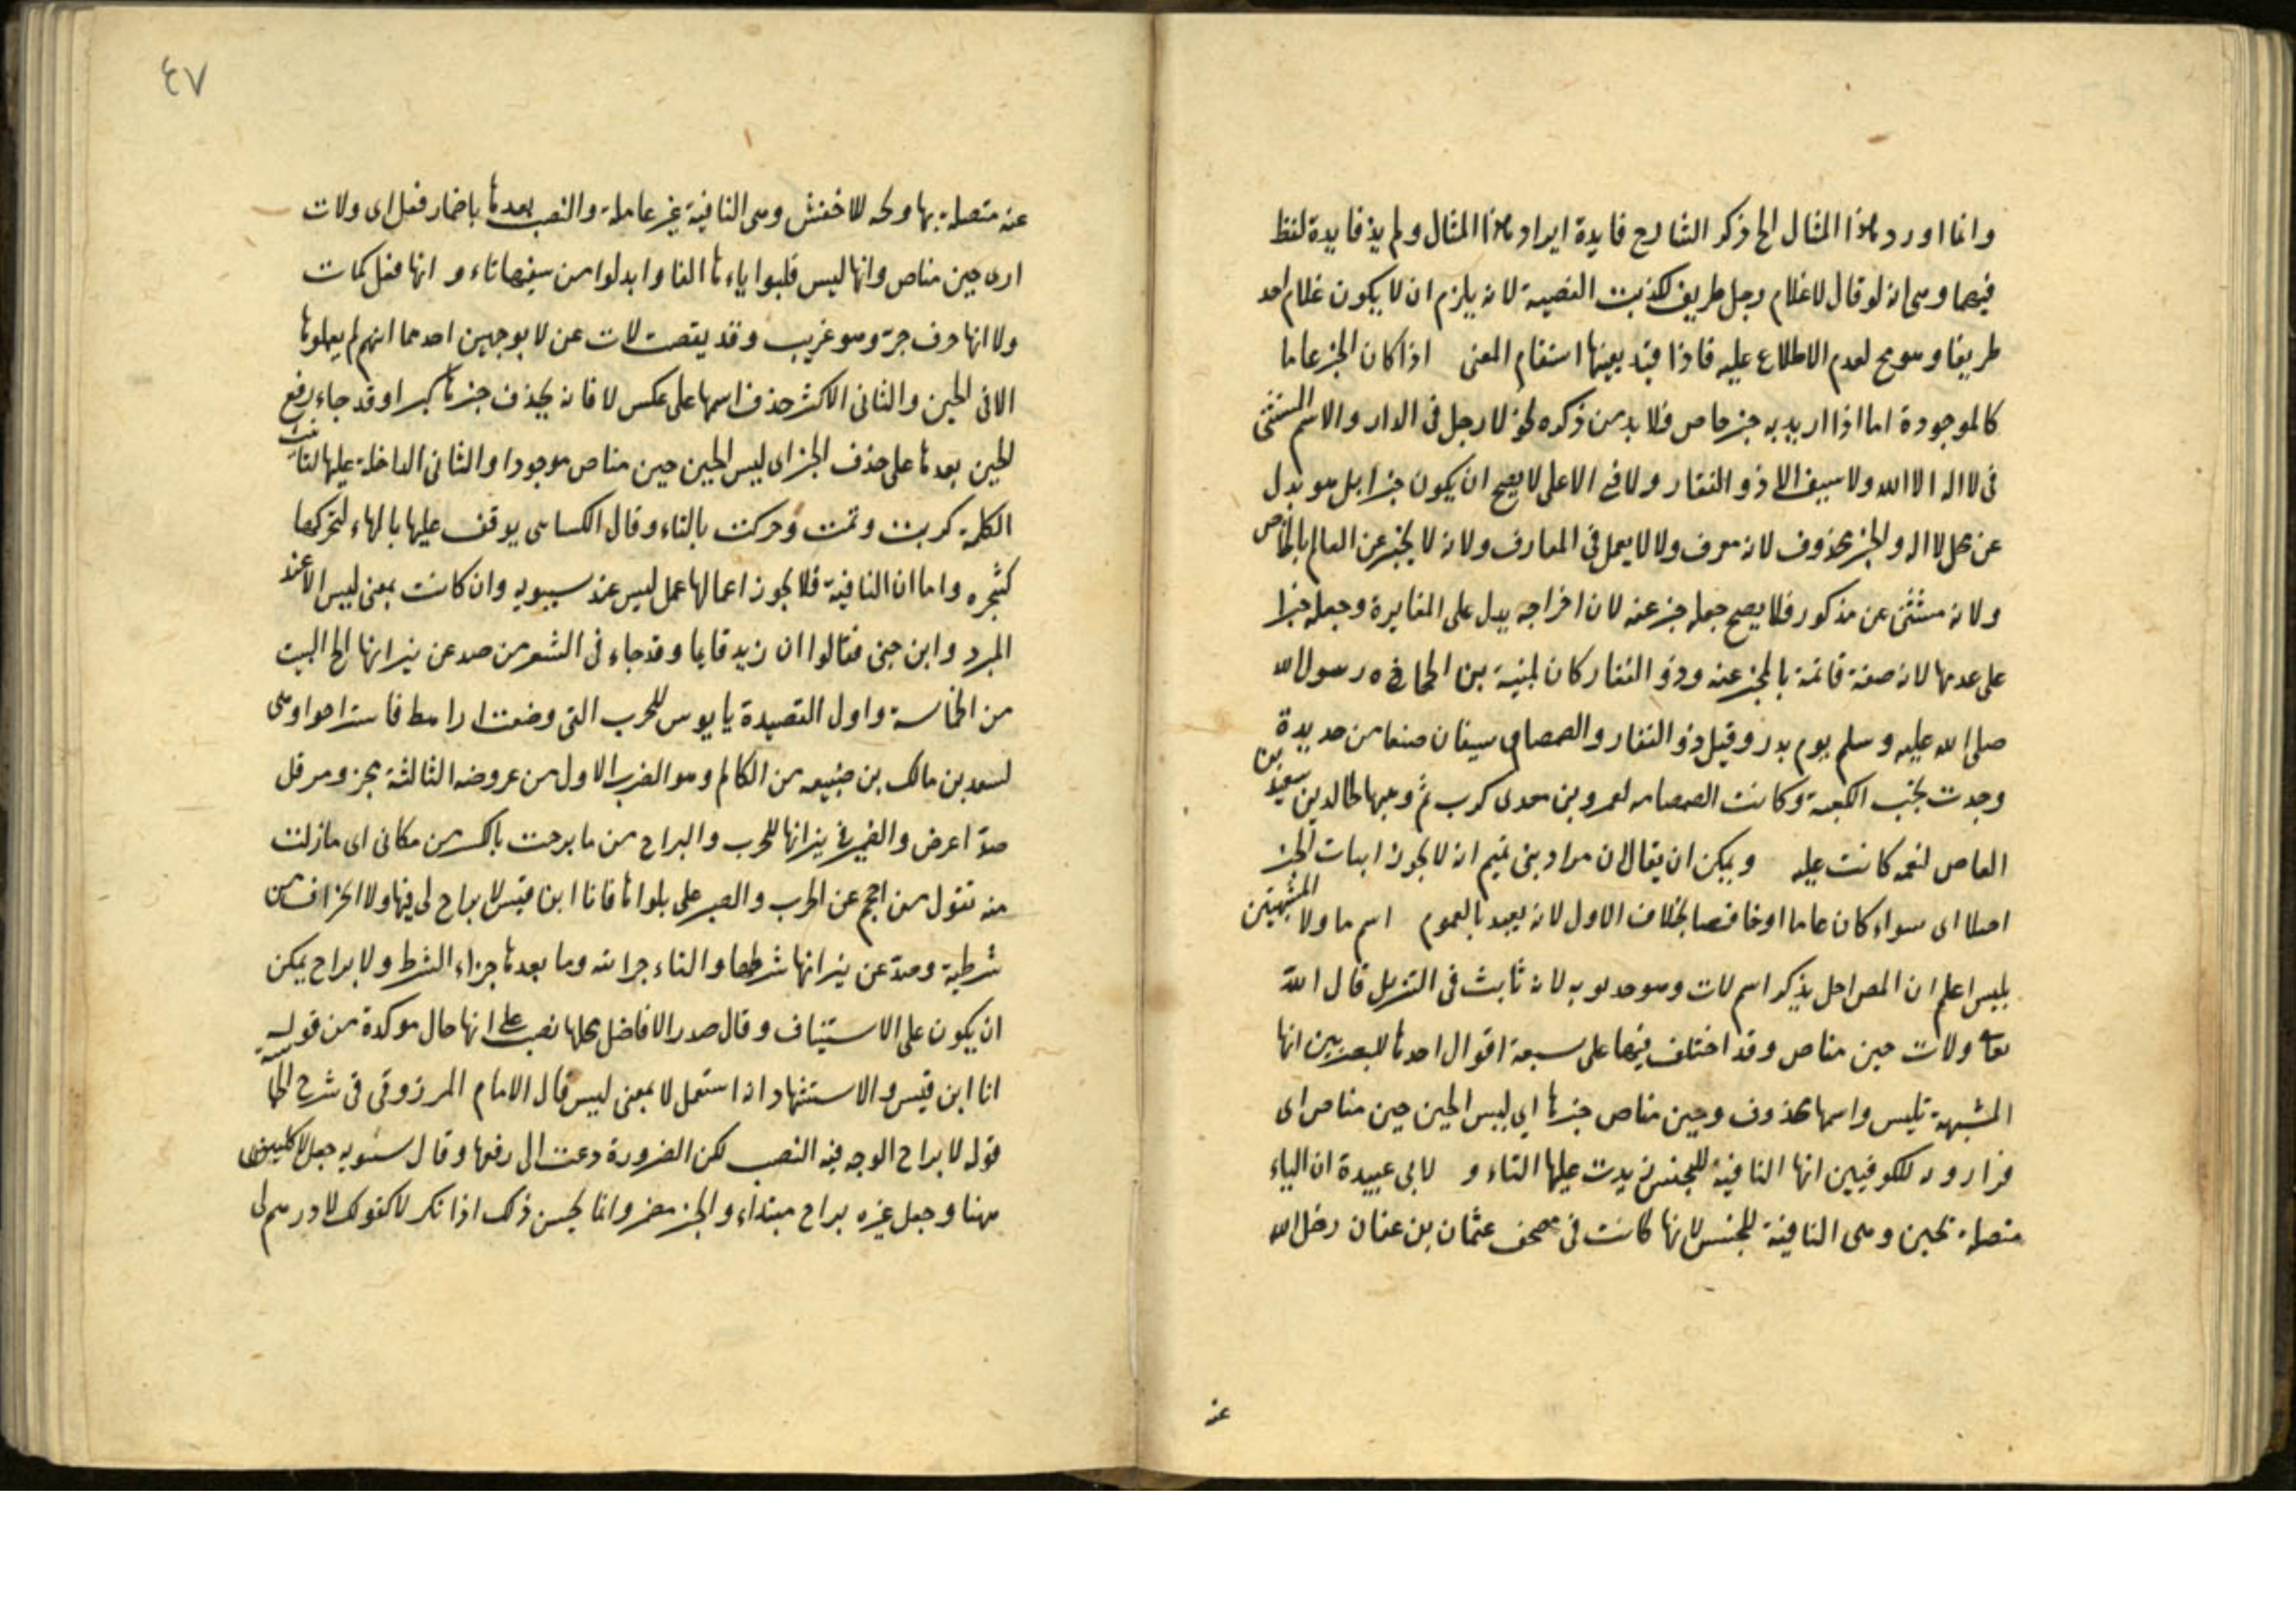 وانما اورد هذا المثال الخ ذكر الشارح فايدة ايراد هذا المثال ولم يذ فايدة لفظ
فيها وهى انه لو قال لا غلام رجل ظريف لكذبت القضية لانه يلزم ان لا يكون غلام احد
ظريفا وهو مح لعدم الاطلاع عليه فاذا قيد بفيها استقام المعنى اذا كان الخبر عاما
كالموجودة اما اذا اريد به خبر خاص فلا بد من ذكره نحو لا رجل فى الدار والاسم المستثنى
فى لا اله الا الله ولا سيف الا ذو الفقار ولا فتى الا على لا يصح ان يكون خبرا بل هو بدل
عن محل لا اله والخبر محذوف لانه معرف ولا لا يعمل فى المعارف ولانه لا يخبر عن العام بالخاص
ولانه مستثنى من مذكور فلا يصح جعله خبر عنه لان اخراجه يدل على المغايرة وجعله خبرا
على عدمها لانه صفة قائمة بالمخبر عنه وذو الفقار كان لمنبه بن الحجاج رسول الله
صلى الله عليه وسلم يوم بدر وقيل ذو الفقار والصمصام سيفان صنعا من حديدة
وجدت بجنب الكعبة وكانت الصمصامه لعمرو بن معدى كرب ثم وهبها لخالد بن سعيد بن
العاص لنعمه كانت عليه ويمكن ان يقال ان مراد بنى تميم انه لا يجوز اثبات الخبر
اصلا اى سواء كان عاما او خاصا بخلاف الاول لانه يقيد بالعموم اسم ما ولا المشبهتين
بليس اعلم ان المصر احل يذكر اسم لات وهو مدلوب لانه ثابت فى التنزيل قال الله
تعالى ولات حين مناص وقد اختلف فيها على سبعة اقوال احدها للبصريين انها
المشبهة بليس واسمها محذوف وحين مناص خبرها اي ليس الحين حين مناص اى
فرار و للكوفيين انها النافية للجنس زيدت عليها التاء و لابى عبيدة ان التاء
متصلة بحين وهى النافية للجنس لانها كانت فى مصحف عثمان بن عفان رضى الله
عنه
٤٧
عنه متصلة بها و للاخفش وهى النافية غير عاملة والنصب بعدها باضمار فعل اى ولات
ارى حين مناص وانها ليس قلبوا ياءها الفا وابدلوا من سينها تاء و انها فعل كمات
ولا انها حرف جر وهو غريب وقد ينقص لات عن لا بوجهين احدهما انهم لم يعملوها
الا فى الحين والثانى الاكثر حذف اسمها على عكس لا فانه يحذف خبرها كثيرا وقد جاء رفع
الحين بعدها على حذف الخبر اى ليس الحين حين مناص موجودا والثانى الداخلة عليها لتانيث
الكلمة كربت وثمت وحركت بالتاء وقال الكسائى يوقف عليها بالهاء لتحركها
كشجره واما ان النافية فلا يجوز اعمالها عمل ليس عند سيبويه وان كانت بمعنى ليس الا عند
المبرد وابن جنى فقالوا ان زيد قايما وقد جاء فى الشعر من صد عن نيرانها الخ البيت
من الحماسة واول القصيدة يا بوس للحرب التى وضعت اراهط فاستراحوا وهى
لسعد بن مالك بن ضبيعه من الكامل وهو الضرب الاول من عروضه الثالثة مجزو مرفل
صد اعرض والضمير فى نيرانها للحرب والبراح من ما برحت بالكسر من مكانى اى ما زلت
منه تقول من احجم عن الحرب والصبر على بلواها فانا ابن قيس لا براح لى فيها ولا انحراف من
شرطية وصد عن نيرانها شرطها والفاء جزائه وما بعدها جزاء الشرط ولا براح يمكن
ان يكون على الاستيناف وقال صدر الافاضل محلها نصب على انها حال موكدة من قوله
انا ابن قيس والاستشهاد انه استعمل لا بمعنى ليس قال الامام المرزوقى فى شرح الحماسة
قوله لا براح الوجه فيه النصب لكن الضرورة دعت الى رفعها وقال سيبويه جعل لا كليس
ههنا وجعل غيره براح مبتداء والخبر مضمر وانما يحسن ذلك اذا تكر لا كقولك لا درهم لى